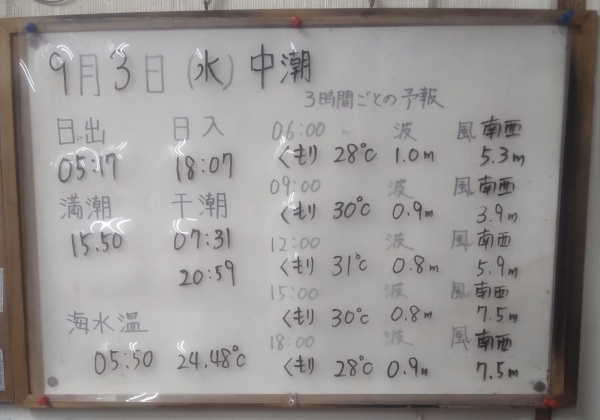 9月3日(水)中潮
3時間ごとの予報
日出 日入
05:17 18:07
満潮 干潮
15.50 07:31
20:59
海水温
05:50 24.48℃
06:00 ~ 波 風 南西
くもり 28℃ 1.0m 5.3m
09:00 波 風 南西
くもり 30℃ 0.9m 3.9m
12:00 波 風 南西
くもり 31℃ 0.8m 5.9m
15:00 波 風 南西
くもり 30℃ 0.8m 7.5m
18:00 波 風 南西
くもり 28℃ 0.9m 7.5m